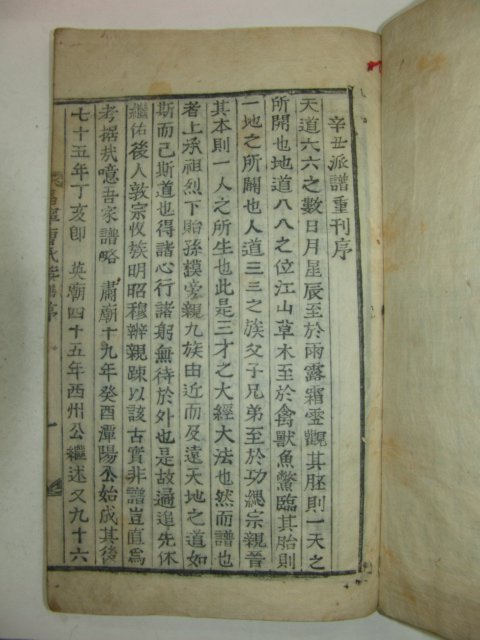 辛丑派譜重刊序
天道六六之數日月星辰至於雨露霜雪觀其胚則一天之
所開也地道八八之位江山草木至於禽獸魚鱉臨其胎則
一地之所闢也人道三三之族父子兄弟至於功緦宗親晉
其本則一人之所生也此是三才之大經大法也然而譜也
者上承祖烈下貽孫摸旁親九族由近而及遠天地之道如
斯而已斯道也得諸心行諸躬無待於外也是故遹追先休
繼佑後人敦宗收族明昭穆辨親踈以該古實非譜豈直爲
考据哉噫吾家譜略 肅廟十九年癸酉潭陽公始成其後
七十五年丁亥卽 英廟四十五年西州公繼述又九十六
曺氏 序